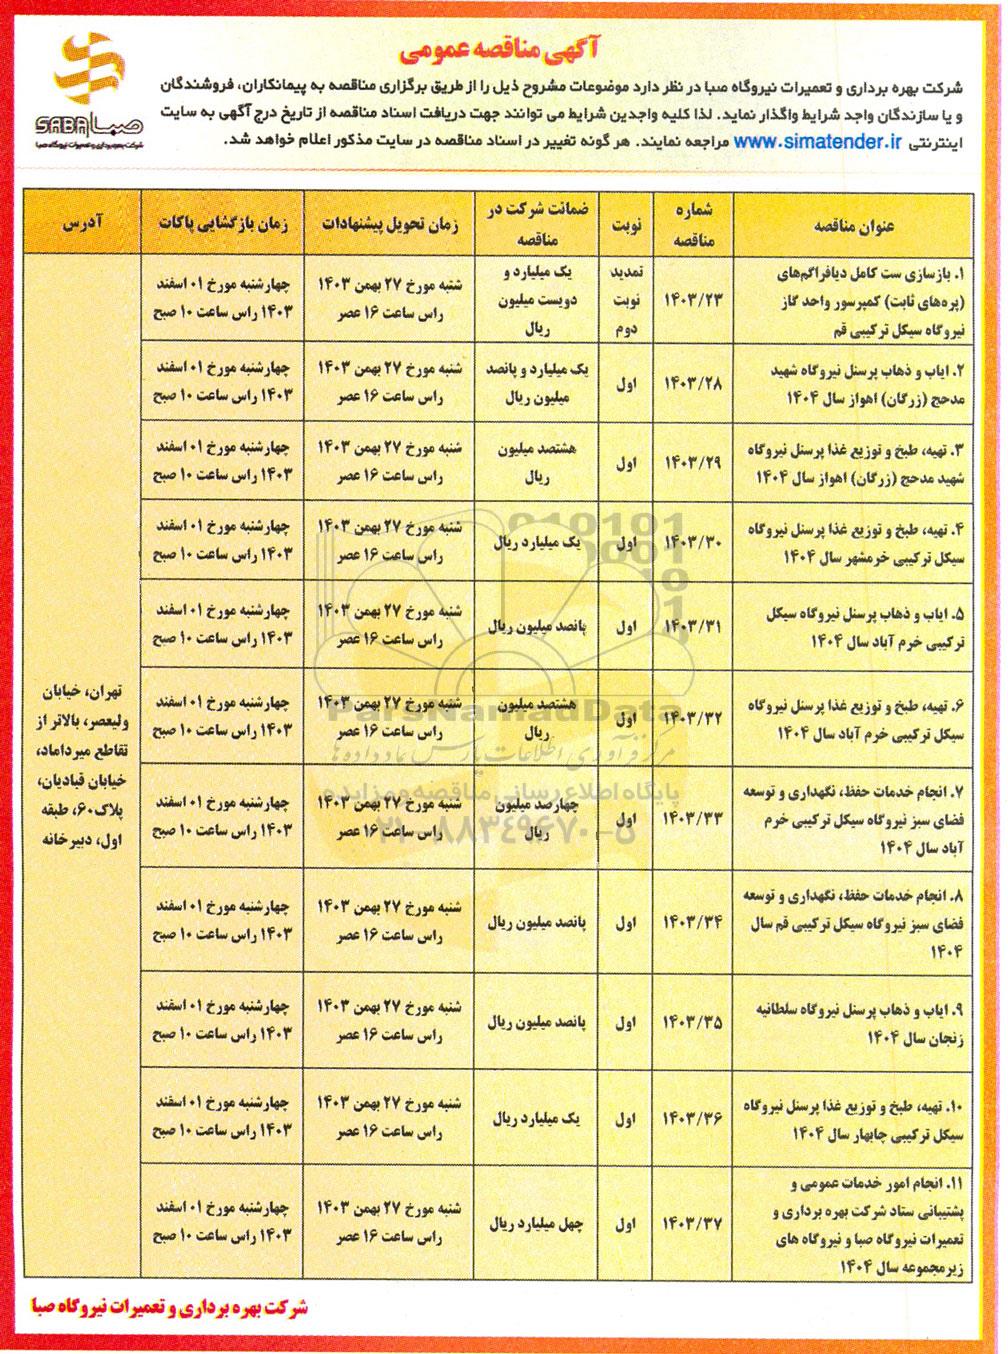 آگهی مناقصه عمومی
صبا SABA
شرکت بهره برداری و تعمیرات نیروگاه صبا
شرکت بهره برداری و تعمیرات نیروگاه صبا در نظر دارد موضوعات مشروح ذیل را از طریق برگزاری مناقصه به پیمانکاران، فروشندگان
و یا سازندگان واجد شرایط واگذار نماید. لذا کلیه واجدین شرایط می توانند جهت دریافت اسناد مناقصه از تاریخ درج آگهی به سایت
اینترنتی www.simatender.ir مراجعه نمایند. هر گونه تغییر در اسناد مناقصه در سایت مذکور اعلام خواهد شد.
عنوان مناقصه
شماره
مناقصه
نوبت
ضمانت شرکت در
مناقصه
زمان تحویل پیشنهادات
زمان بازگشایی پاکات
آدرس
۱. بازسازی ست کامل دیافراگم‌های
(پره‌های ثابت) کمپرسور واحد گاز
نیروگاه سیکل ترکیبی قم
۱۴۰۳/۲۳
تمدید
نوبت
دوم
یک میلیارد و
دویست میلیون
ریال
شنبه مورخ ۲۷ بهمن ۱۴۰۳
راس ساعت ۱۶ عصر
چهارشنبه مورخ ۰۱ اسفند
۱۴۰۳ راس ساعت ۱۰ صبح
۲. ایاب و ذهاب پرسنل نیروگاه شهید
مدحج (زرگان) اهواز سال ۱۴۰۴
۱۴۰۳/۲۸
اول
یک میلیارد و پانصد
میلیون ریال
شنبه مورخ ۲۷ بهمن ۱۴۰۳
راس ساعت ۱۶ عصر
چهارشنبه مورخ ۰۱ اسفند
۱۴۰۳ راس ساعت ۱۰ صبح
۳. تهیه، طبخ و توزیع غذا پرسنل نیروگاه
شهید مدحج (زرگان) اهواز سال ۱۴۰۴
۱۴۰۳/۲۹
اول
هشتصد میلیون
ریال
شنبه مورخ ۲۷ بهمن ۱۴۰۳
راس ساعت ۱۶ عصر
چهارشنبه مورخ ۰۱ اسفند
۱۴۰۳ راس ساعت ۱۰ صبح
۴. تهیه، طبخ و توزیع غذا پرسنل نیروگاه
سیکل ترکیبی خرمشهر سال ۱۴۰۴
۱۴۰۳/۳۰
اول
یک میلیارد ریال
شنبه مورخ ۲۷ بهمن ۱۴۰۳
راس ساعت ۱۶ عصر
چهارشنبه مورخ ۰۱ اسفند
۱۴۰۳ راس ساعت ۱۰ صبح
۵. ایاب و ذهاب پرسنل نیروگاه سیکل
ترکیبی خرم آباد سال ۱۴۰۴
۱۴۰۳/۳۱
اول
پانصد میلیون ریال
شنبه مورخ ۲۷ بهمن ۱۴۰۳
راس ساعت ۱۶ عصر
چهارشنبه مورخ ۰۱ اسفند
۱۴۰۳ راس ساعت ۱۰ صبح
۶. تهیه، طبخ و توزیع غذا پرسنل نیروگاه
سیکل ترکیبی خرم آباد سال ۱۴۰۴
۱۴۰۳/۳۲
اول
هشتصد میلیون
ریال
شنبه مورخ ۲۷ بهمن ۱۴۰۳
راس ساعت ۱۶ عصر
چهارشنبه مورخ ۰۱ اسفند
۱۴۰۳ راس ساعت ۱۰ صبح
۷. انجام خدمات حفظ، نگهداری و توسعه
فضای سبز نیروگاه سیکل ترکیبی خرم
آباد سال ۱۴۰۴
۱۴۰۳/۳۳
اول
چهارصد میلیون
ریال
شنبه مورخ ۲۷ بهمن ۱۴۰۳
راس ساعت ۱۶ عصر
چهارشنبه مورخ ۰۱ اسفند
۱۴۰۳ راس ساعت ۱۰ صبح
۸. انجام خدمات حفظ، نگهداری و توسعه
فضای سبز نیروگاه سیکل ترکیبی قم سال
۱۴۰۴
۱۴۰۳/۳۴
اول
پانصد میلیون ریال
شنبه مورخ ۲۷ بهمن ۱۴۰۳
راس ساعت ۱۶ عصر
چهارشنبه مورخ ۰۱ اسفند
۱۴۰۳ راس ساعت ۱۰ صبح
۹. ایاب و ذهاب پرسنل نیروگاه سلطانیه
زنجان سال ۱۴۰۴
۱۴۰۳/۳۵
اول
پانصد میلیون ریال
شنبه مورخ ۲۷ بهمن ۱۴۰۳
راس ساعت ۱۶ عصر
چهارشنبه مورخ ۰۱ اسفند
۱۴۰۳ راس ساعت ۱۰ صبح
۱۰. تهیه، طبخ و توزیع غذا پرسنل نیروگاه
سیکل ترکیبی چابهار سال ۱۴۰۴
۱۴۰۳/۳۶
اول
یک میلیارد ریال
شنبه مورخ ۲۷ بهمن ۱۴۰۳
راس ساعت ۱۶ عصر
چهارشنبه مورخ ۰۱ اسفند
۱۴۰۳ راس ساعت ۱۰ صبح
۱۱. انجام امور خدمات عمومی و
پشتیبانی ستاد شرکت بهره برداری و
تعمیرات نیروگاه صبا و نیروگاه های
زیرمجموعه سال ۱۴۰۴
۱۴۰۳/۳۷
اول
چهل میلیارد ریال
شنبه مورخ ۲۷ بهمن ۱۴۰۳
راس ساعت ۱۶ عصر
چهارشنبه مورخ ۰۱ اسفند
۱۴۰۳ راس ساعت ۱۰ صبح
تهران، خیابان
ولیعصر، بالاتر از
تقاطع میرداماد،
خیابان قبادیان،
پلاک۶۰، طبقه
اول، دبیرخانه
ParsNamadData
مرکز فرآوری اطلاعات پارس نماد داده ها
پایگاه اطلاع رسانی مناقصه و مزایده
۰۲۱-۸۸۳۴۹۶۷۰-۵
شرکت بهره برداری و تعمیرات نیروگاه صبا